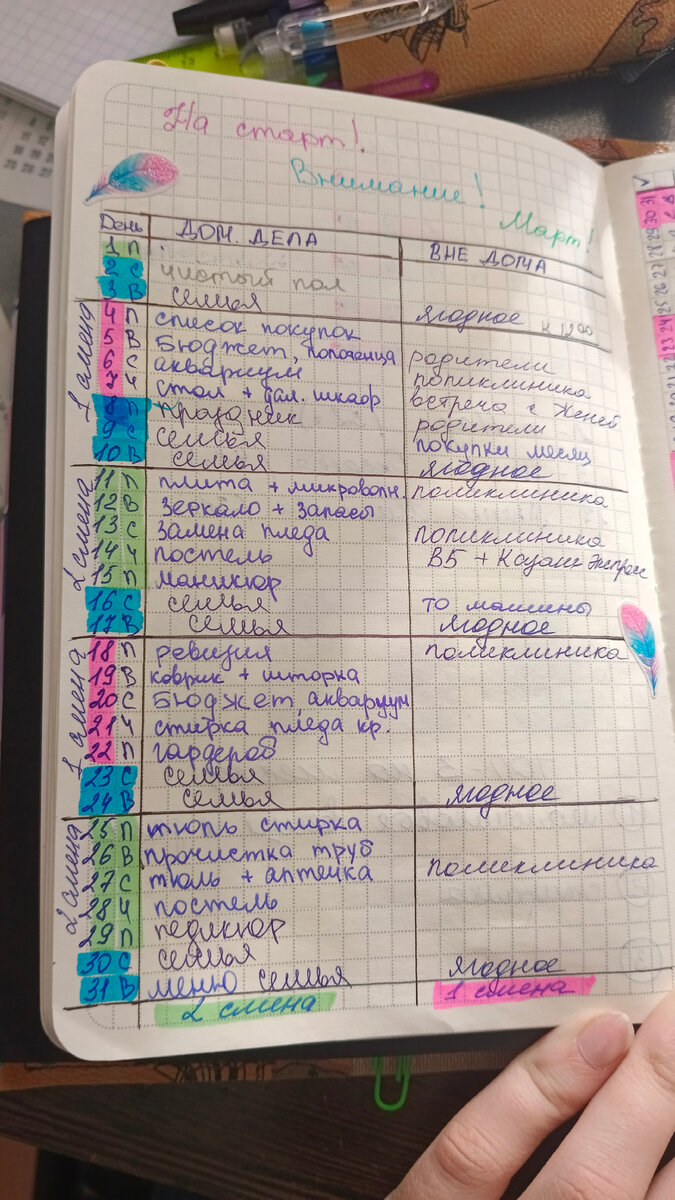 На старт!
Внимание!
Март!
День ДОМ. ДЕЛА ВНЕ ДОМА
1 П
2 С чистый пол
3 В семья ягодное к 12 00
1 смена
4 П список покупок
5 В Бюджет, полотенца родители
6 С аквариум поликлиника
7 Ч стол + дал. шкаф встреча с Женей
8 П праздник родители
9 С семья покупки месяц
10 В семья ягодное
2 смена
11 П плита + микроволн. поликлиника
12 В зеркало + запасы
13 С замена пледа поликлиника
14 Ч постель В5 + Казан Экспресс
15 П маникюр
16 С семья то машины
17 В семья ягодное
1 смена
18 П ревизия поликлиника
19 В коврик + шторка
20 С Бюджет, аквариум
21 Ч стирка пледа кр.
22 П гардероб
23 С семья
24 В семья ягодное
2 смена
25 П тюль стирка
26 В прочистка труб поликлиника
27 С тюль + аптечка
28 Ч постель
29 П педикюр
30 С семья
31 В меню семья ягодное
2 смена 1 смена